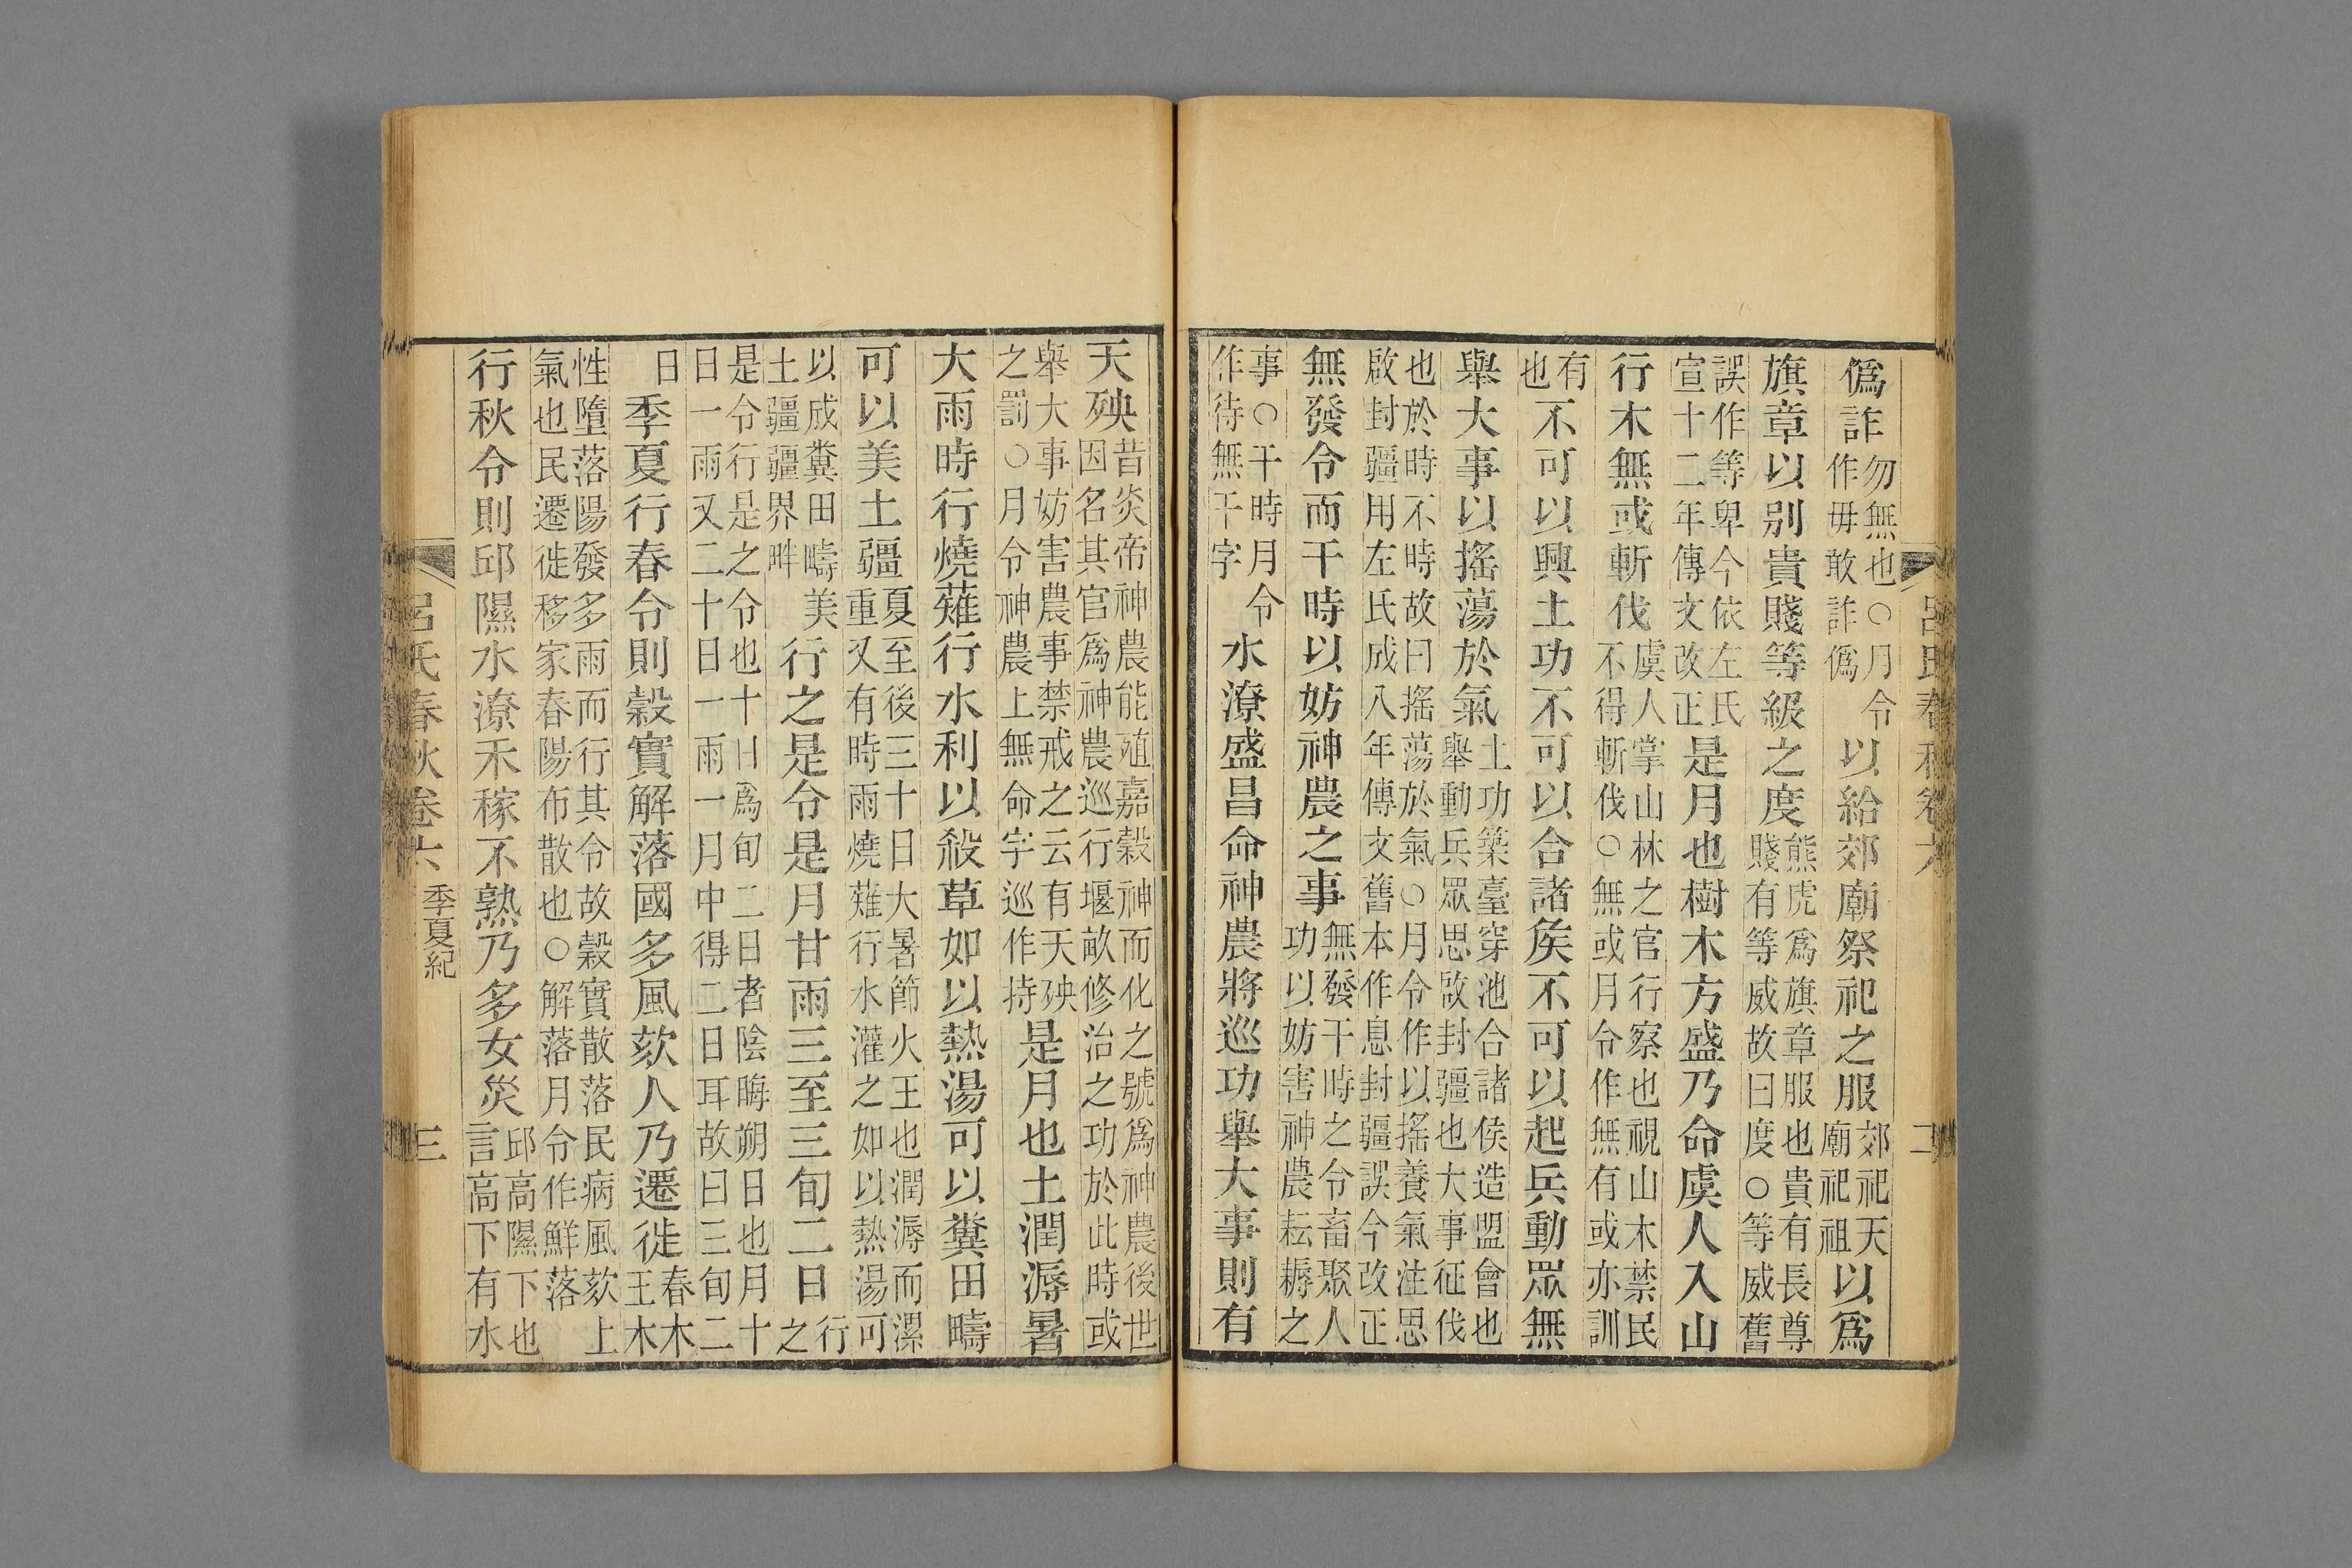 呂氏春秋卷六 二
僞詐勿無也○月令作毋敢詐僞以給郊廟祭祀之服郊祀天廟祀祖以爲
旗章以別貴賤等級之度熊虎爲旗章服也貴有長尊賤有等威故曰度○等威舊
誤作等卑今依左氏宣十二年傳文改正是月也樹木方盛乃命虞人入山
行木無或斬伐虞人掌山林之官行察也視山木禁民不得斬伐○無或月令作無有或亦訓
有也不可以興土功不可以合諸矦不可以起兵動眾無
舉大事以搖蕩於氣土功築臺穿池合諸侯造盟會也舉動兵眾思啟封疆也大事征伐
也於時不時故曰搖蕩於氣○月令作以搖養氣注思啟封疆用左氏成八年傳文舊本作息封疆誤今改正
無發令而干時以妨神農之事無發干時之令畜聚人功以妨害神農耘耨之
事○干時月令作待無干字水潦盛昌命神農將巡功舉大事則有
天殃昔炎帝神農能殖嘉穀神而化之號爲神農後世因名其官爲神農巡行堰畝修治之功於此時或
舉大事妨害農事禁戒之云有天殃之罰○月令神農上無命字巡作持是月也土潤溽暑
大雨時行燒薙行水利以殺草如以熱湯可以糞田疇
可以美土疆夏至後三十日大暑節火王也潤溽而漯重又有時雨燒薙行水灌之如以熱湯可
以成糞田疇美土疆疆界畔行之是令是月甘雨三至三旬二日行之
是令行是之令也十日爲旬二日者陰晦朔日也月十日一雨又二十日一雨一月中得二日耳故曰三旬二
日季夏行春令則穀實解落國多風欬人乃遷徙春木王木
性墮落陽發多雨而行其令故穀實散落民病風欬上氣也民遷徙移家春陽布散也○解落月令作鮮落
行秋令則邱隰水潦禾稼不熟乃多女災邱高隰下也言高下有水
呂氏春秋卷六 季夏紀 三